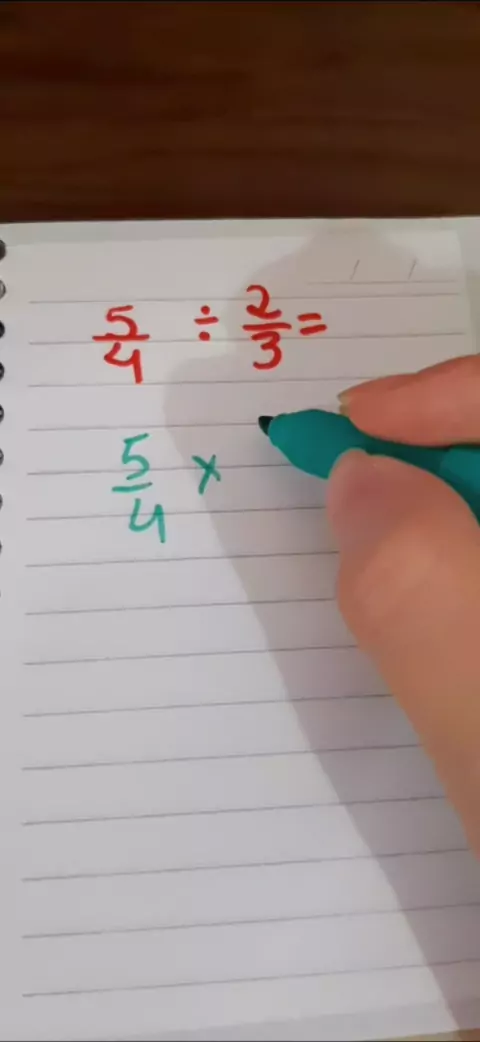 5/4 ÷ 2/3 =
5/4 ×